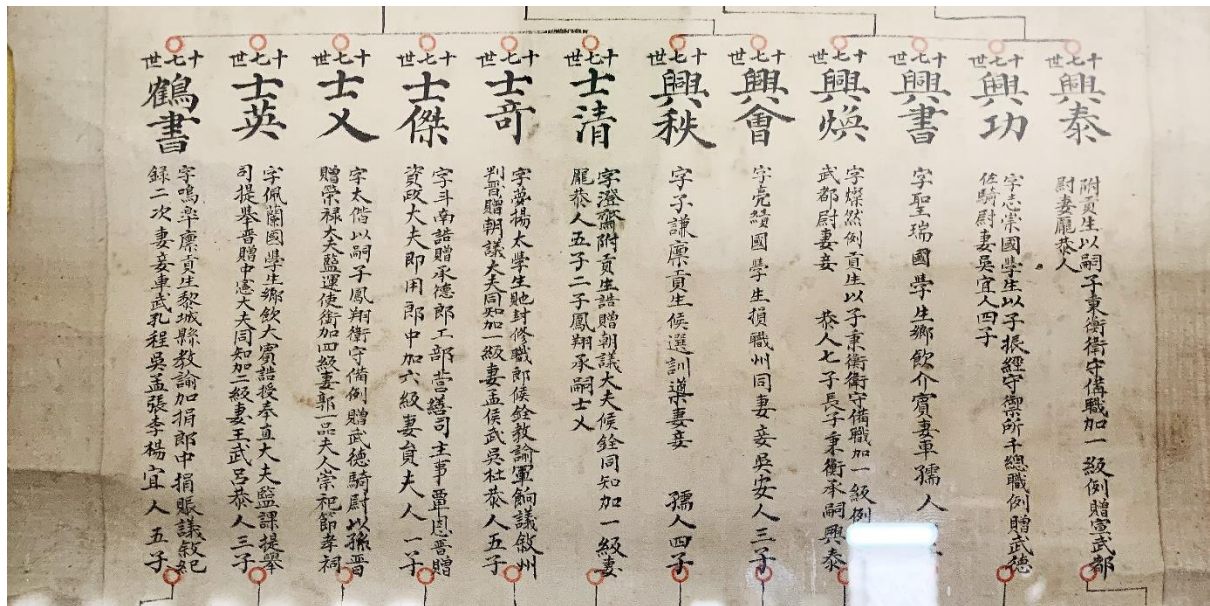 十七世
興泰
附貢生以嗣子秉衡衛守備職加一級例贈宣武都
尉妻龐恭人
十七世
興功
字志崇國學生以子振經守禦所千總職例贈武德
佐騎尉妻吳宜人四子
十七世
興書
字聖瑞國學生鄉飲介賓妻車孺人
十七世
興煥
字燦然例貢生以子秉衡衛守備職加一級例
武都尉妻妾 恭人七子長子秉衡承嗣興泰
十七世
興會
字亮績國學生捐職州同妻妾吳安人三子
十七世
興秋
字子謙廪貢生候選訓導妻妾 孺人四子
十七世
士清
字澄齋附貢生誥贈朝議大夫候銓同知加一級妻
龐恭人五子二子鳳翔承嗣士乂
十七世
士奇
字夢揚太學生貤封修職郎候銓教諭軍餉議敘州
判晋贈朝議大夫同知加一級妻孟侯武吳杜恭人五子
十七世
士傑
字斗南誥贈承德郎工部營繕司主事覃恩晋贈
資政大夫即用郎中加六級妻貟夫人一子
十七世
士乂
字太偕以嗣子鳳翔衛守備例贈武德騎尉以孫晋
贈榮禄大夫鹽運使銜加四級妻郭一品夫人崇祀節孝祠
十七世
士英
字佩蘭國學生鄉飲大賓誥授奉直大夫鹽課提舉
司提舉晋贈中憲大夫同知加二級妻王武呂恭人三子
十七世
鶴書
字鳴臯廪貢生黎城縣教諭加捐郎中捐賑議敘紀
録二次妻妾車武孔程吳孟張李楊宜人五子